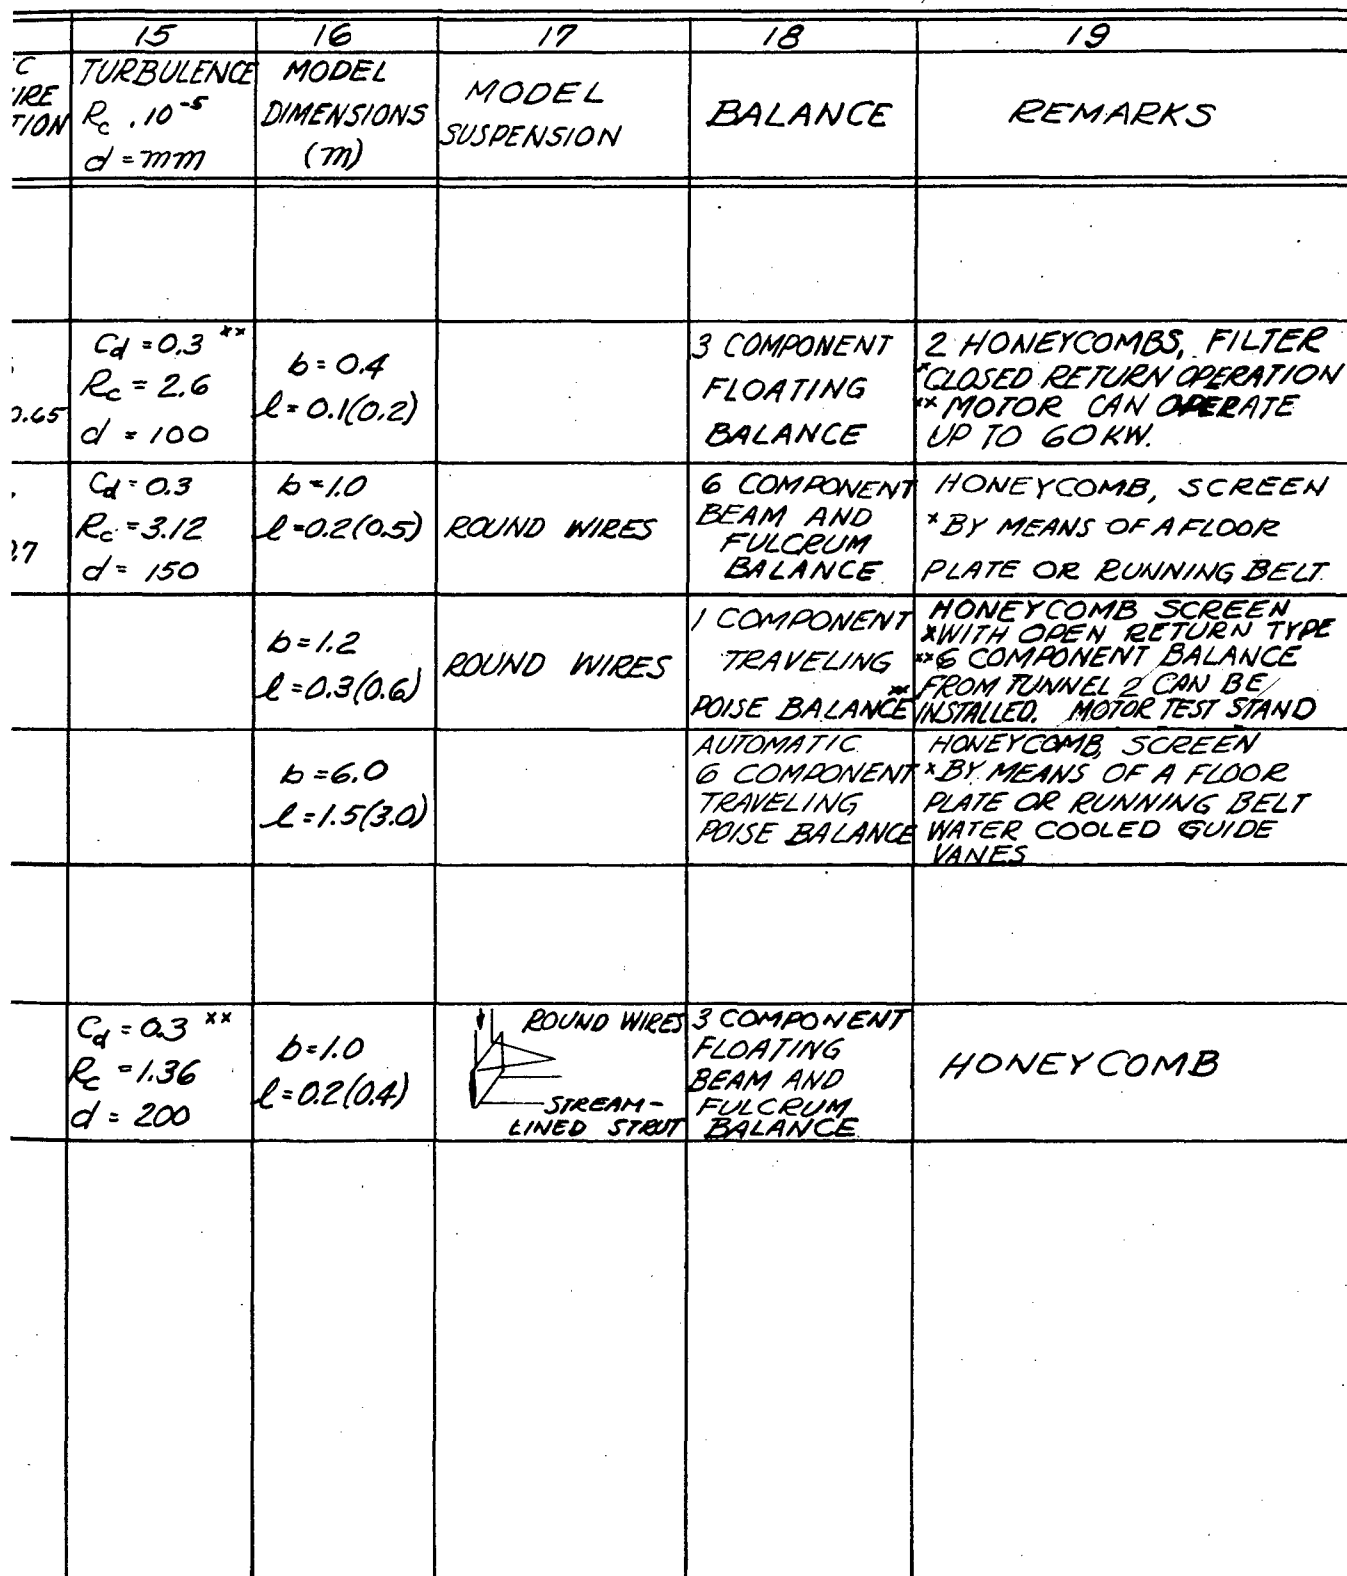 15 16 17 18 19
C
IRE
TION
TURBULENCE
Rc . 10⁻⁵
d = mm
MODEL
DIMENSIONS
(m)
MODEL
SUSPENSION
BALANCE
REMARKS
0.65
Cd = 0.3 **
Rc = 2.6
d = 100
b = 0.4
l = 0.1(0.2)
3 COMPONENT
FLOATING
BALANCE
2 HONEYCOMBS, FILTER
*CLOSED RETURN OPERATION
** MOTOR CAN OPERATE
UP TO 60 KW.
Cd = 0.3
Rc = 3.12
d = 150
b = 1.0
l = 0.2(0.5)
ROUND WIRES
6 COMPONENT
BEAM AND
FULCRUM
BALANCE
HONEYCOMB, SCREEN
* BY MEANS OF A FLOOR
PLATE OR RUNNING BELT.
b = 1.2
l = 0.3(0.6)
ROUND WIRES
1 COMPONENT
TRAVELING
POISE BALANCE **
HONEYCOMB SCREEN
*WITH OPEN RETURN TYPE
**6 COMPONENT BALANCE
FROM TUNNEL 2 CAN BE
INSTALLED. MOTOR TEST STAND
b = 6.0
l = 1.5(3.0)
AUTOMATIC
6 COMPONENT
TRAVELING
POISE BALANCE
HONEYCOMB, SCREEN
* BY MEANS OF A FLOOR
PLATE OR RUNNING BELT
WATER COOLED GUIDE
VANES
Cd = 0.3 **
Rc = 1.36
d = 200
b = 1.0
l = 0.2(0.4)
ROUND WIRES
STREAM-
LINED STRUT
3 COMPONENT
FLOATING
BEAM AND
FULCRUM
BALANCE
HONEYCOMB